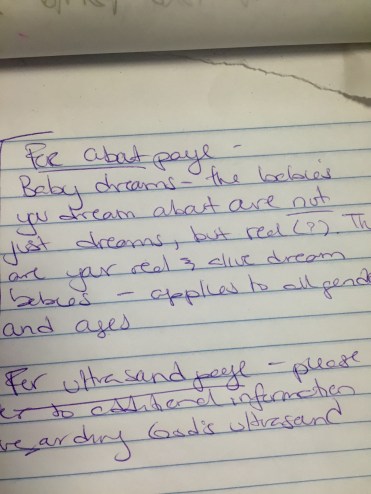 For about page -
Baby dreams - the babies
you dream about are not
just dreams, but real (?). Th
are your real & alive dream
babies - applies to all gende
and ages
For ultrasound page - please
er to additional information
regarding God's ultrasound